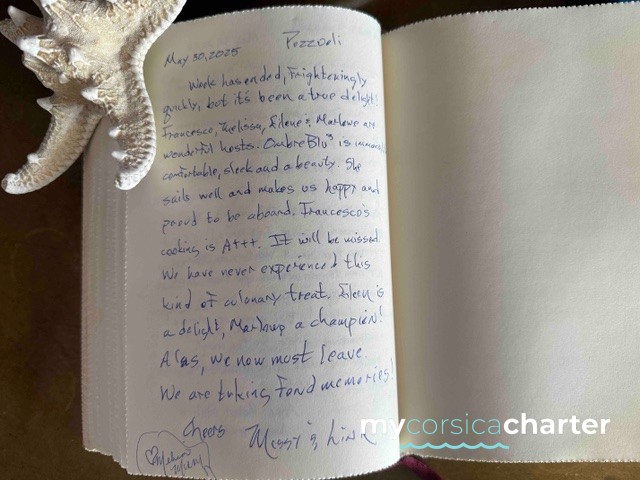 May 30, 2025 Pozzuoli
Week has ended, Frighteningly
quickly, but it's been a true delight!
Francesco, Melissa, Eileen & Marlowe are
wonderful hosts. OmbreBlu³ is
comfortable, sleek and a beauty. She
sails well and makes us happy and
proud to be aboard. Francesco's
cooking is A+++. It will be missed
We have never experienced this
kind of culunary treat. Eileen is
a delight, Marlowe a champion!
Alas, we now must leave.
We are taking fond memories!
Cheers Missy &
mycorsicacharter